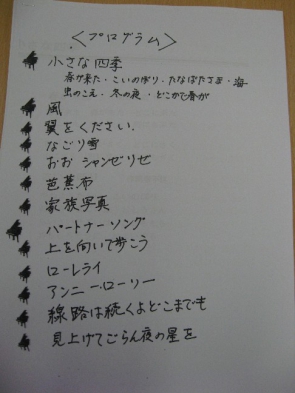 <プログラム>
小さな四季
春が来た・こいのぼり・たなばたさま・海
虫のこえ・冬の夜・どこかで春が
風
翼をください.
なごり雪
おお シャンゼリゼ
芭蕉布
家族写真
パートナーソング
上を向いて歩こう
ローレライ
アンニー・ローリー
線路は続くよどこまでも
見上げてごらん夜の星を